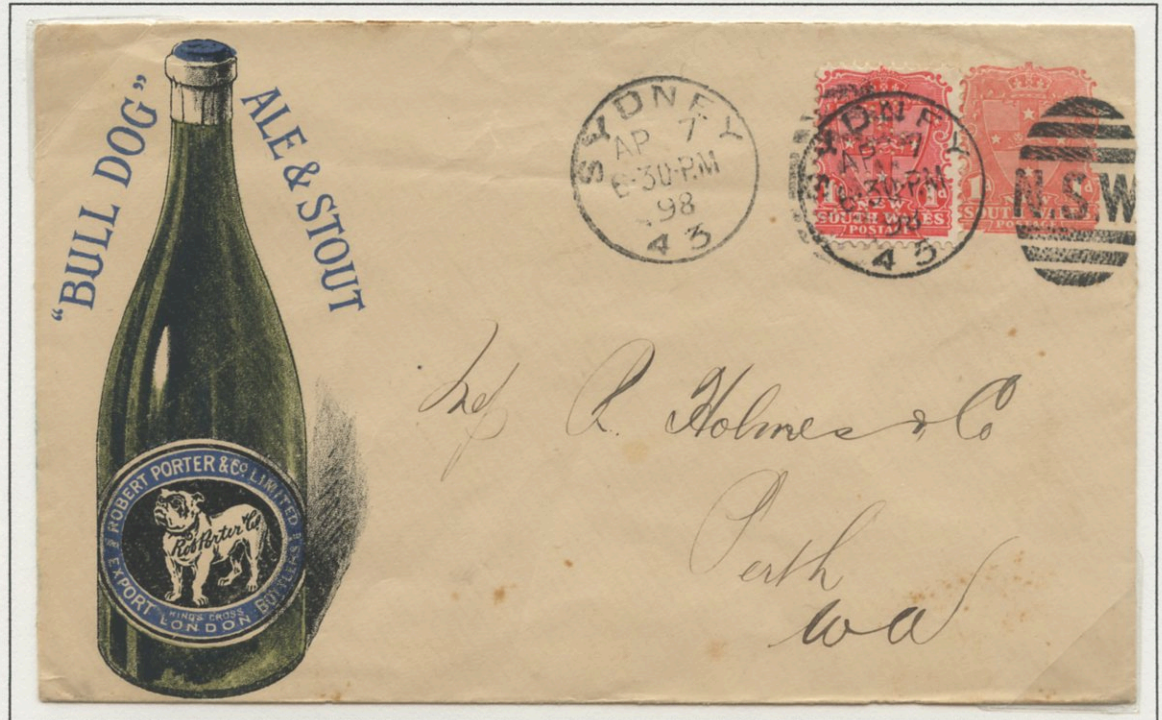 "BULL DOG" ALE & STOUT
ROBERT PORTER & Co. LIMITED
Robt Porter & Co.
EXPORT BOTTLERS
KINGS CROSS
LONDON
SYDNEY
AP 7
6-30-P.M
98
43
SYDNEY
AP 7
6-30-P.M
98
43
1d 1d
NEW
SOUTH WALES
POSTAGE
N.S.W
R. Holmes & Co
Perth
WA